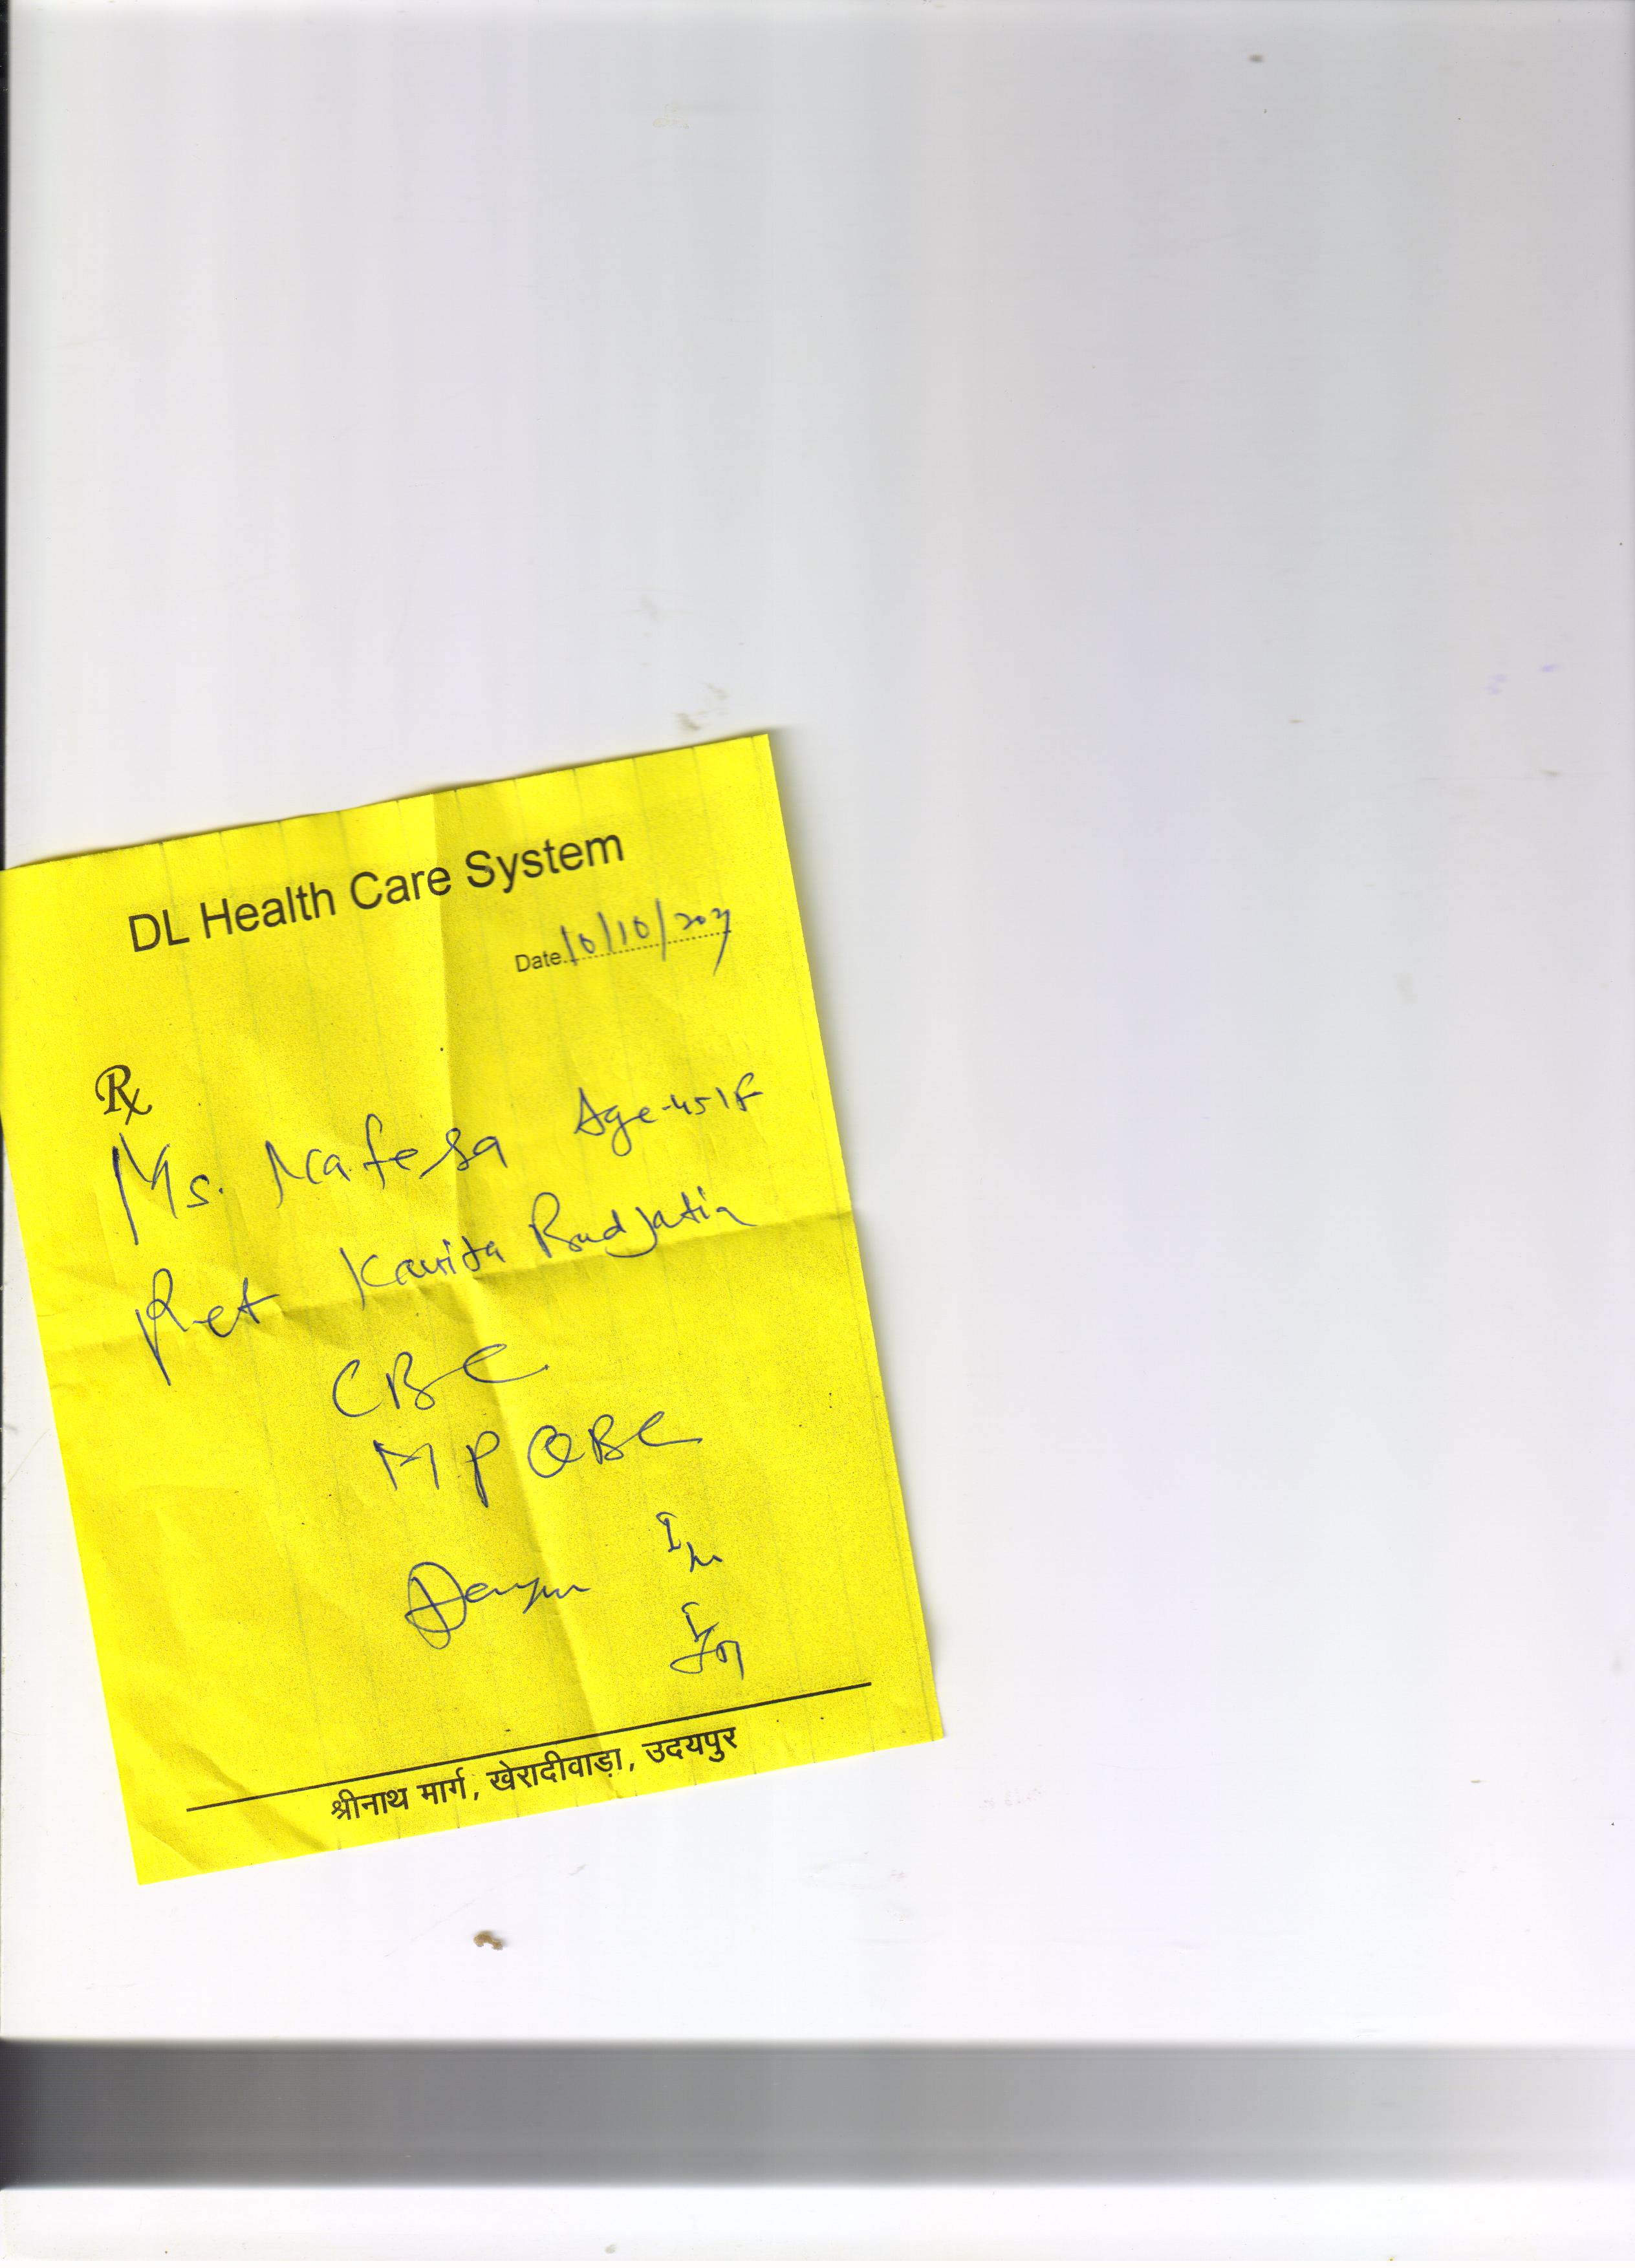 DL Health Care System
Date. 10/10/2021
Rx
Ms. Nafesa Age-45/F
Ref Kavita Badjatia
CBC
MP QBC
Dengue
श्रीनाथ मार्ग, खेरादीवाड़ा, उदयपुर